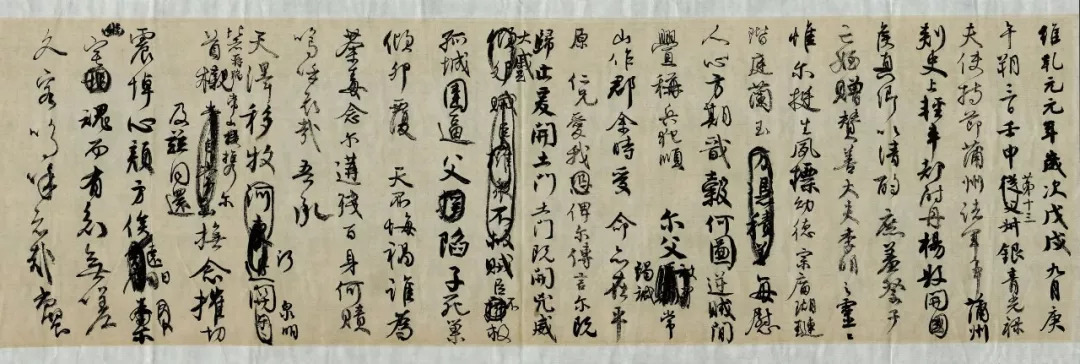 維乾元元年歲次戊戌九月庚
午朔三日壬申第十三從父叔銀青光祿
夫使持節蒲州諸軍事蒲州
刺史上輕車都尉丹楊縣開國
侯真卿以清酌庶羞祭于
亡姪贈贊善大夫季明之靈曰
惟爾挺生夙標幼德宗廟瑚璉
階庭蘭玉方憑積善每慰
人心方期戩穀何圖逆賊閒
釁稱兵犯順爾父竭誠常
山作郡余時受命亦在平
原仁兄愛我俾爾傳言爾既
歸止爰開土門土門既開凶威
大蹙賊臣擁衆不救賊臣不救
孤城圍逼父陷子死巢
傾卵覆天不悔禍誰為
荼毒念爾遘殘百身何贖
嗚呼哀哉吾承
天澤移牧河關泉明
比者再陷常山攜爾
首櫬及茲同還撫念摧切
震悼心顏方俟遠日卜爾
幽宅魂而有知無嗟
久客嗚呼哀哉尚饗